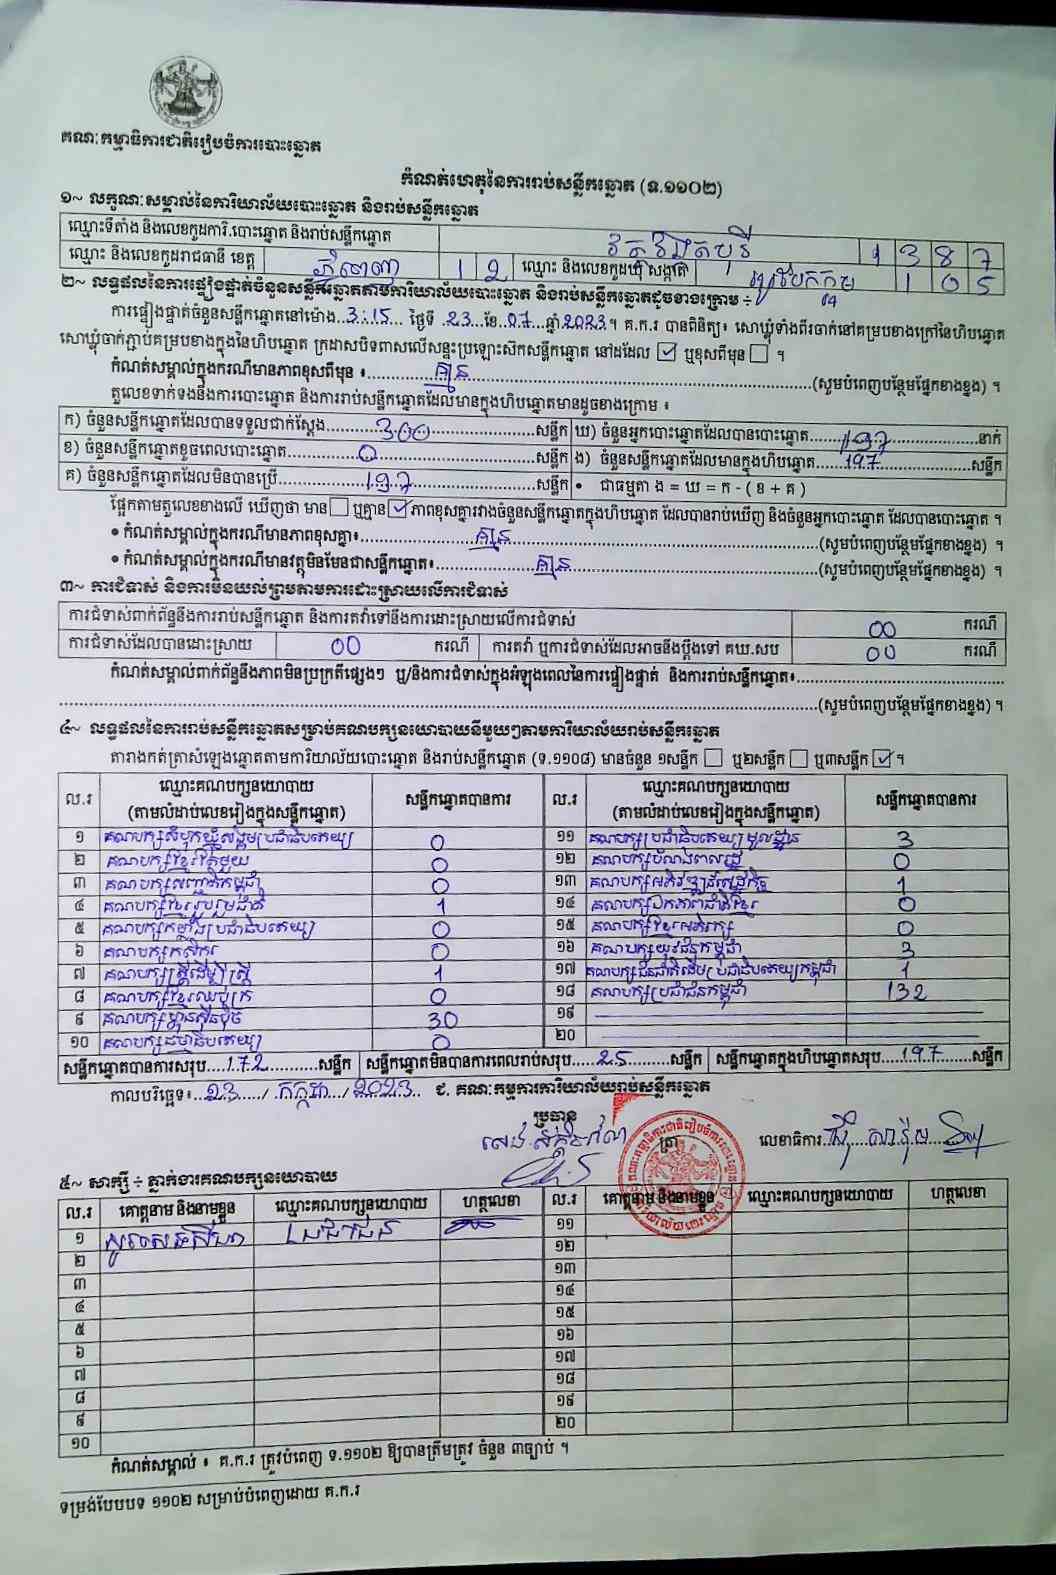 គណៈកម្មាធិការជាតិរៀបចំការបោះឆ្នោត
កំណត់ហេតុនៃការរាប់សន្លឹកឆ្នោត (ទ.១១០២)
១~ លក្ខណៈសម្គាល់នៃការិយាល័យបោះឆ្នោត និងរាប់សន្លឹកឆ្នោត
ឈ្មោះទីតាំង និងលេខកូដការិ.បោះឆ្នោត និងរាប់សន្លឹកឆ្នោត 1 3 8 7
ឈ្មោះ និងលេខកូដរាជធានី ខេត្ត ភ្នំពេញ 1 2 ឈ្មោះ និងលេខកូដឃុំ សង្កាត់ 1 0 5
២~ លទ្ធផលនៃការផ្ទៀងផ្ទាត់ចំនួនសន្លឹកឆ្នោតតាមការិយាល័យបោះឆ្នោត និងរាប់សន្លឹកឆ្នោតដូចខាងក្រោម ÷
ការផ្ទៀងផ្ទាត់ចំនួនសន្លឹកឆ្នោតនៅម៉ោង 3:15 ថ្ងៃទី 23 ខែ 07 ឆ្នាំ 2023។ គ.ក.រ បានពិនិត្យ៖ សោឃ្លុំទាំងពីរចាក់នៅគម្របខាងក្រៅនៃហិបឆ្នោត
សោឃ្លុំចាក់ភ្ជាប់គម្របខាងក្នុងនៃហិបឆ្នោត ក្រដាសបិទពាសលើសន្ទះប្រឡោះស៊កសន្លឹកឆ្នោត នៅដដែល ☑ ឬខុសពីមុន ☐ ។
កំណត់សម្គាល់ក្នុងករណីមានភាពខុសពីមុន ៖ គ្មាន (សូមបំពេញបន្ថែមផ្នែកខាងខ្នង) ។
តួលេខទាក់ទងនឹងការបោះឆ្នោត និងការរាប់សន្លឹកឆ្នោតដែលមានក្នុងហិបឆ្នោតមានដូចខាងក្រោម ៖
ក) ចំនួនសន្លឹកឆ្នោតដែលបានទទួលជាក់ស្តែង 300 សន្លឹក ឃ) ចំនួនអ្នកបោះឆ្នោតដែលបានបោះឆ្នោត 197 នាក់
ខ) ចំនួនសន្លឹកឆ្នោតខូចពេលបោះឆ្នោត 0 សន្លឹក ង) ចំនួនសន្លឹកឆ្នោតដែលមានក្នុងហិបឆ្នោត 197 សន្លឹក
គ) ចំនួនសន្លឹកឆ្នោតដែលមិនបានប្រើ សន្លឹក • ជាធម្មតា ង = ឃ = ក - ( ខ + គ )
ផ្អែកតាមតួលេខខាងលើ ឃើញថា មាន ☐ ឬគ្មាន ☑ ភាពខុសគ្នារវាងចំនួនសន្លឹកឆ្នោតក្នុងហិបឆ្នោត ដែលបានរាប់ឃើញ និងចំនួនអ្នកបោះឆ្នោត ដែលបានបោះឆ្នោត ។
• កំណត់សម្គាល់ក្នុងករណីមានភាពខុសគ្នា៖ គ្មាន (សូមបំពេញបន្ថែមផ្នែកខាងខ្នង) ។
• កំណត់សម្គាល់ក្នុងករណីមានវត្ថុមិនមែនជាសន្លឹកឆ្នោត៖ គ្មាន (សូមបំពេញបន្ថែមផ្នែកខាងខ្នង) ។
៣~ ការជំទាស់ និងការមិនយល់ព្រមតាមការដោះស្រាយលើការជំទាស់
ការជំទាស់ពាក់ព័ន្ធនឹងការរាប់សន្លឹកឆ្នោត និងការតវ៉ាទៅនឹងការដោះស្រាយលើការជំទាស់ 00 ករណី
ការជំទាស់ដែលបានដោះស្រាយ 00 ករណី ការតវ៉ា ឬការជំទាស់ដែលអាចនឹងប្តឹងទៅ គឃ.សប 00 ករណី
កំណត់សម្គាល់ពាក់ព័ន្ធនឹងភាពមិនប្រក្រតីផ្សេងៗ ឬ/និងការជំទាស់ក្នុងអំឡុងពេលនៃការផ្ទៀងផ្ទាត់ និងការរាប់សន្លឹកឆ្នោត៖
(សូមបំពេញបន្ថែមផ្នែកខាងខ្នង) ។
៤~ លទ្ធផលនៃការរាប់សន្លឹកឆ្នោតសម្រាប់គណបក្សនយោបាយនីមួយៗតាមការិយាល័យរាប់សន្លឹកឆ្នោត
តារាងកត់ត្រាសំឡេងឆ្នោតតាមការិយាល័យបោះឆ្នោត និងរាប់សន្លឹកឆ្នោត (ទ.១១០៨) មានចំនួន ១សន្លឹក ☐ ឬ២សន្លឹក ☐ ឬ៣សន្លឹក ☑ ។
ល.រ ឈ្មោះគណបក្សនយោបាយ (តាមលំដាប់លេខរៀងក្នុងសន្លឹកឆ្នោត) សន្លឹកឆ្នោតបានការ ល.រ ឈ្មោះគណបក្សនយោបាយ (តាមលំដាប់លេខរៀងក្នុងសន្លឹកឆ្នោត) សន្លឹកឆ្នោតបានការ
១ គណបក្សសំបុកឃ្មុំសង្គមប្រជាធិបតេយ្យ 0 ១១ គណបក្សប្រជាធិបតេយ្យមូលដ្ឋាន 3
២ គណបក្សខ្មែរតែមួយ 0 ១២ គណបក្សបំណងពលរដ្ឋ 0
៣ គណបក្សសញ្ជាតិកម្ពុជា 0 ១៣ គណបក្សអភិវឌ្ឍន៍សេដ្ឋកិច្ច 1
៤ គណបក្សខ្មែររួបរួមជាតិ 1 ១៤ គណបក្សឯកភាពជាតិខ្មែរ 0
៥ គណបក្សកម្លាំងប្រជាធិបតេយ្យ 0 ១៥ គណបក្សខ្មែរអភិរក្ស 0
៦ គណបក្សកសិករ 0 ១៦ គណបក្សយុវជនកម្ពុជា 3
៧ គណបក្សស្ត្រីដើម្បីស្ត្រី 1 ១៧ គណបក្សជនជាតិដើមប្រជាធិបតេយ្យកម្ពុជា 1
៨ គណបក្សខ្មែរឈប់ក្រ 0 ១៨ គណបក្សប្រជាជនកម្ពុជា 132
៩ គណបក្សហ៊្វុនស៊ិនប៉ិច 30 ១៩
១០ គណបក្សធម្មាធិបតេយ្យ 0 ២០
សន្លឹកឆ្នោតបានការសរុប 172 សន្លឹក សន្លឹកឆ្នោតមិនបានការពេលរាប់សរុប 25 សន្លឹក សន្លឹកឆ្នោតក្នុងហិបឆ្នោតសរុប 197 សន្លឹក
កាលបរិច្ឆេទ៖ 23 / កក្កដា / 2023 ជ. គណៈកម្មការការិយាល័យរាប់សន្លឹកឆ្នោត
ប្រធាន
ត្រា លេខាធិការ
៥~ សាក្សី ÷ ភ្នាក់ងារគណបក្សនយោបាយ
ល.រ គោត្តនាម និងនាមខ្លួន ឈ្មោះគណបក្សនយោបាយ ហត្ថលេខា ល.រ គោត្តនាម និងនាមខ្លួន ឈ្មោះគណបក្សនយោបាយ ហត្ថលេខា
១ ១១
២ ១២
៣ ១៣
៤ ១៤
៥ ១៥
៦ ១៦
៧ ១៧
៨ ១៨
៩ ១៩
១០ ២០
កំណត់សម្គាល់ ៖ គ.ក.រ ត្រូវបំពេញ ទ.១១០២ ឱ្យបានត្រឹមត្រូវ ចំនួន ៣ច្បាប់ ។
ទម្រង់បែបបទ ១១០២ សម្រាប់បំពេញដោយ គ.ក.រ